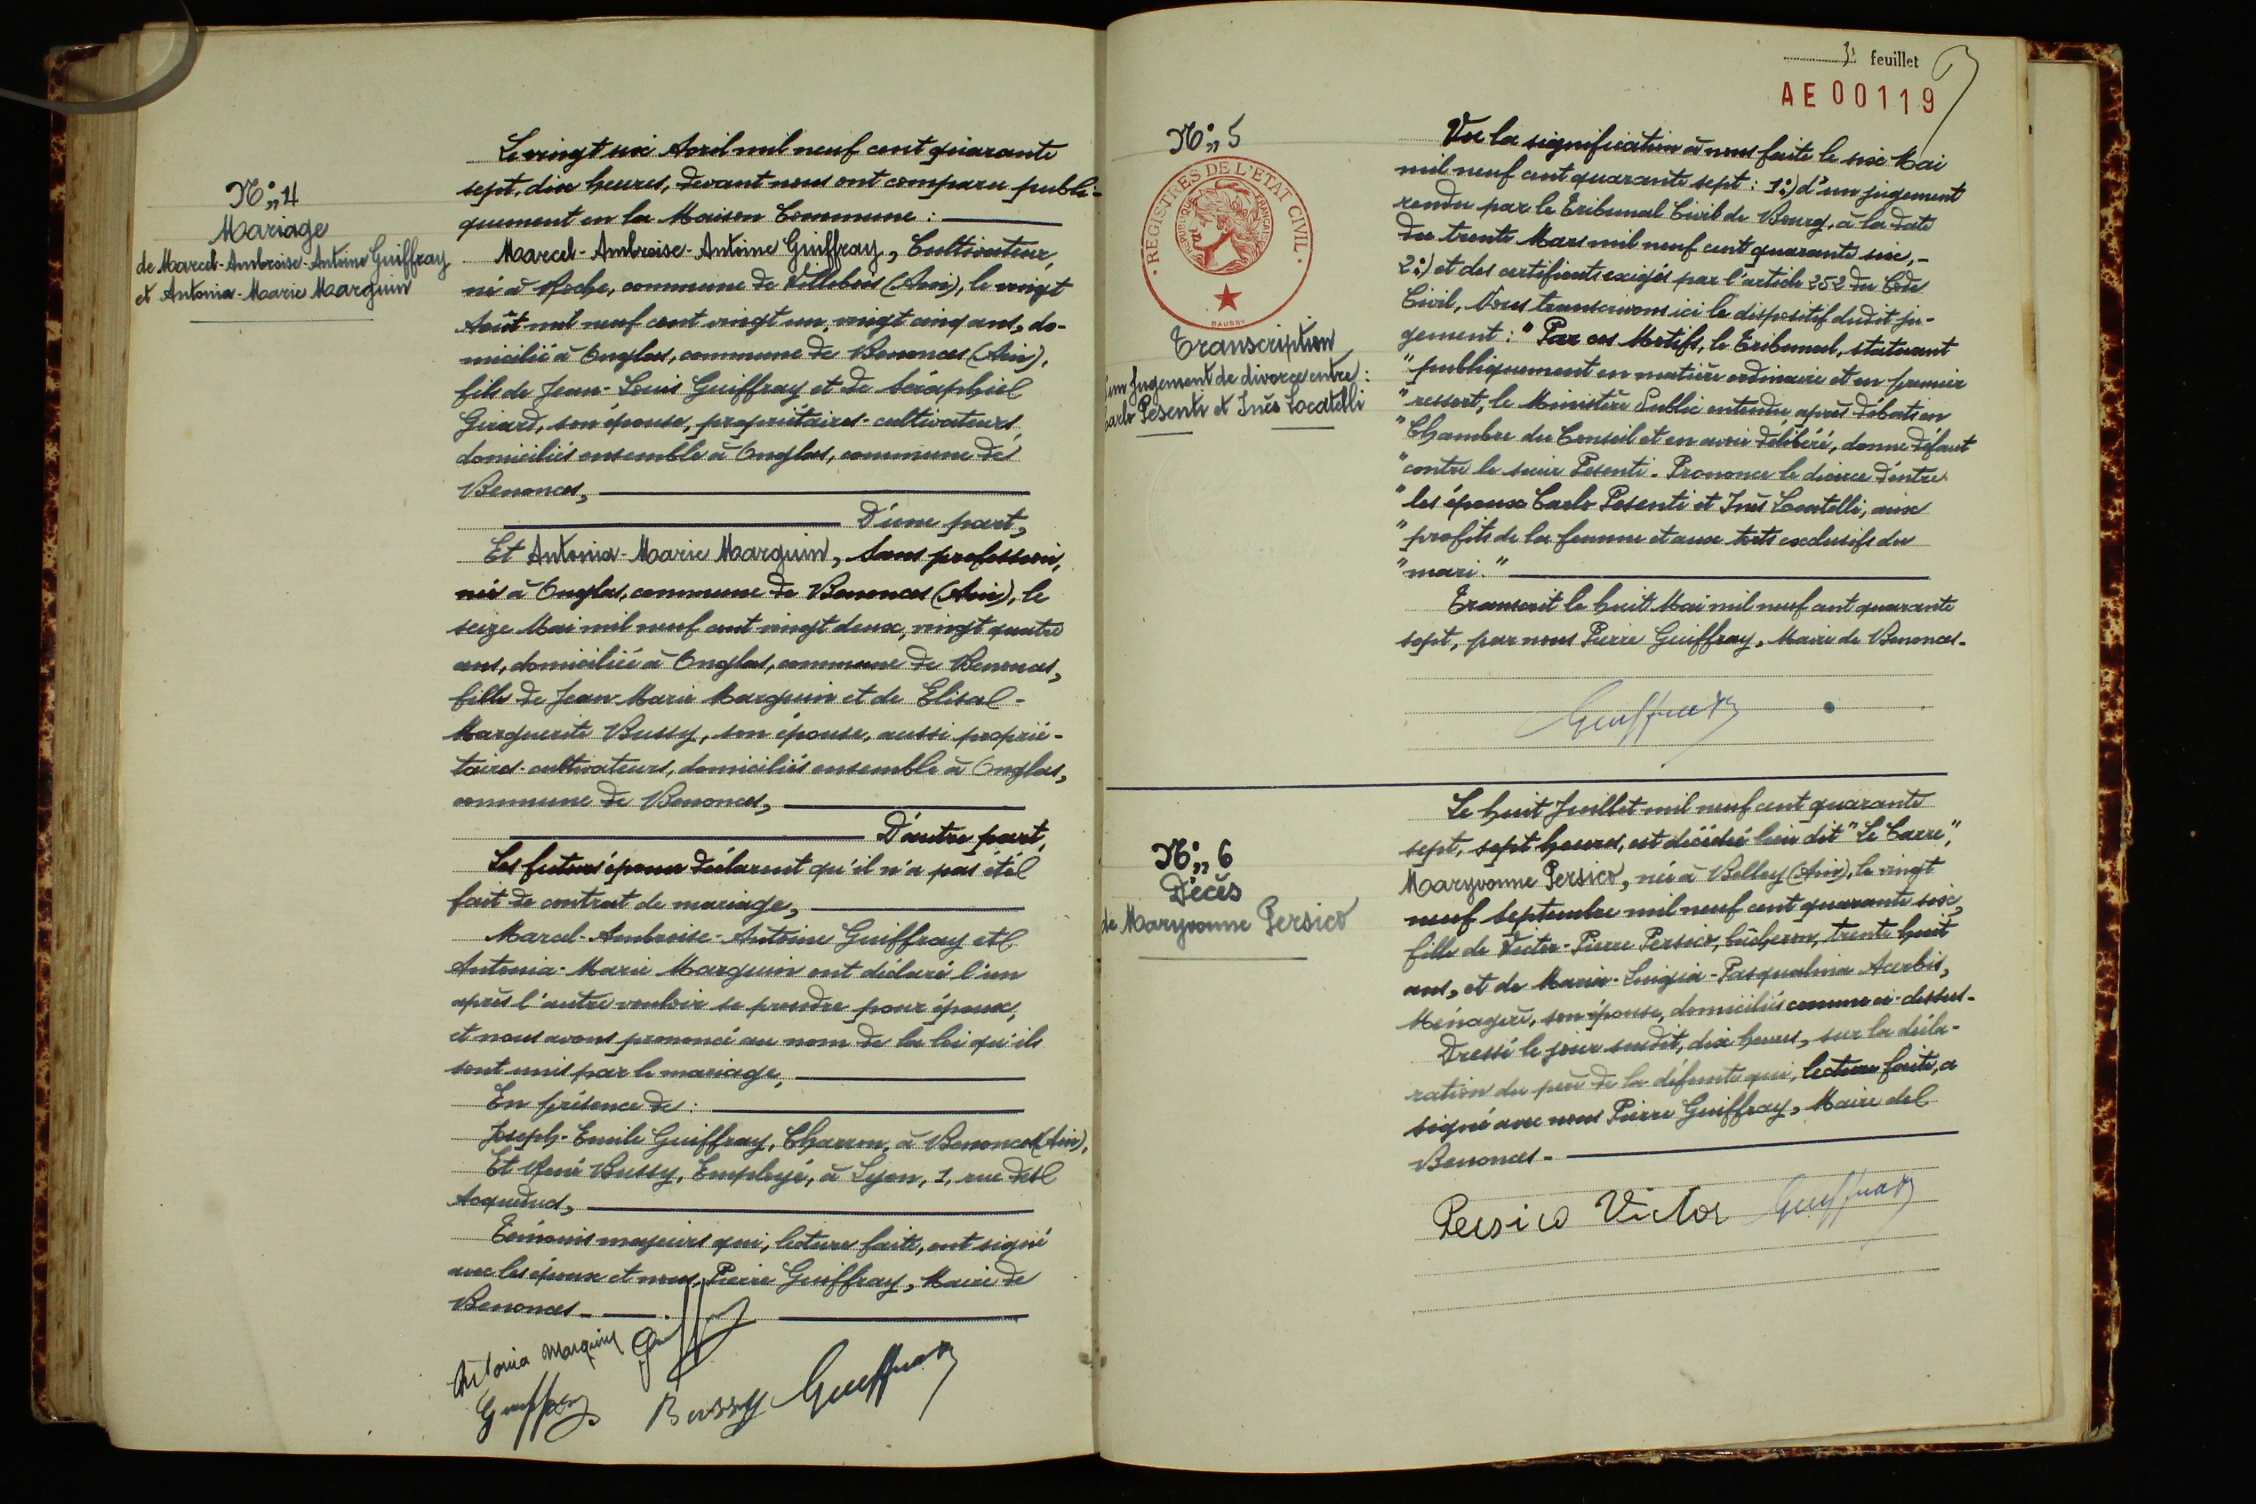 N° 4
Mariage
de Marcel-Ambroise-Antoine Guiffray
et Antonia-Marie Marguin
Le vingt six Avril mil neuf cent quarante
sept, dix heures, devant nous ont comparu publi-
quement en la Maison Commune :
Marcel-Ambroise-Antoine Guiffray, Cultivateur,
né à Roche, commune de Villebois (Ain), le vingt
Août mil neuf cent vingt un, vingt cinq ans, do-
micilié à Onglas, commune de Benonces (Ain),
fils de Jean-Louis Guiffray et de Séraphie
Girard, son épouse, propriétaires-cultivateurs,
domiciliés ensemble à Onglas, commune de
Benonces,
D'une part,
Et Antonia-Marie Marguin, Sans profession,
née à Onglas, commune de Benonces (Ain), le
seize Mai mil neuf cent vingt deux, vingt quatre
ans, domiciliée à Onglas, commune de Benonces,
fille de Jean Marie Marguin et de Elisa-
Marguerite Bussy, son épouse, aussi proprié-
taires-cultivateurs, domiciliés ensemble à Onglas,
commune de Benonces,
D'autre part,
Les futurs époux déclarent qu'il n'a pas été
fait de contrat de mariage,
Marcel-Ambroise-Antoine Guiffray et
Antonia-Marie Marguin ont déclaré l'un
après l'autre vouloir se prendre pour époux,
et nous avons prononcé au nom de la loi qu'ils
sont unis par le mariage,
En présence de :
Joseph-Emile Guiffray, Charron, à Benonces (Ain),
Et René Bussy, Employé, à Lyon, 1, rue des
Aqueducs,
Témoins majeurs qui, lecture faite, ont signé
avec les époux et nous, Pierre Guiffray, Maire de
Benonces.
Antonia Marguin
Guiffray
Bussy Guiffray
3e feuillet
AE 00119
N° 5
REGISTRES DE L'ETAT CIVIL
REPUBLIQUE FRANÇAISE
Transcription
d'un Jugement de divorce entre :
Carlo Pesenti et Inès Locatelli
Vu la signification à nous faite le six Mai
mil neuf cent quarante sept : 1°) d'un jugement
rendu par le Tribunal Civil de Bourg, à la date
du trente Mars mil neuf cent quarante six, -
2°) et des certificats exigés par l'article 252 du Code
Civil, Nous transcrivons ici le dispositif dudit ju-
gement : " Par ces Motifs, le Tribunal, statuant
" publiquement en matière ordinaire et en premier
" ressort, le Ministère Public entendu après débats en
" Chambre du Conseil et en avoir délibéré, donne défaut
" contre le sieur Pesenti. Prononce le divorce d'entre
" les époux Carlo Pesenti et Inès Locatelli, aux
" profits de la femme et aux torts exclusifs du
" mari. "
Transcrit le huit Mai mil neuf cent quarante
sept, par nous Pierre Guiffray, Maire de Benonces.
Guiffray
N° 6
Décès
de Maryvonne Persico
Le huit Juillet mil neuf cent quarante
sept, sept heures, est décédée lieu dit "Le Carre",
Maryvonne Persico, née à Belley (Ain), le vingt
neuf Septembre mil neuf cent quarante six,
fille de Victor-Pierre Persico, bûcheron, trente huit
ans, et de Maria-Luigia-Pasqualina Acerbis,
Ménagère, son épouse, domiciliés comme ci-dessus.
Dressé le jour susdit, dix heures, sur la décla-
ration du père de la défunte qui, lecture faite, a
signé avec nous Pierre Guiffray, Maire de
Benonces.
Persico Victor Guiffray